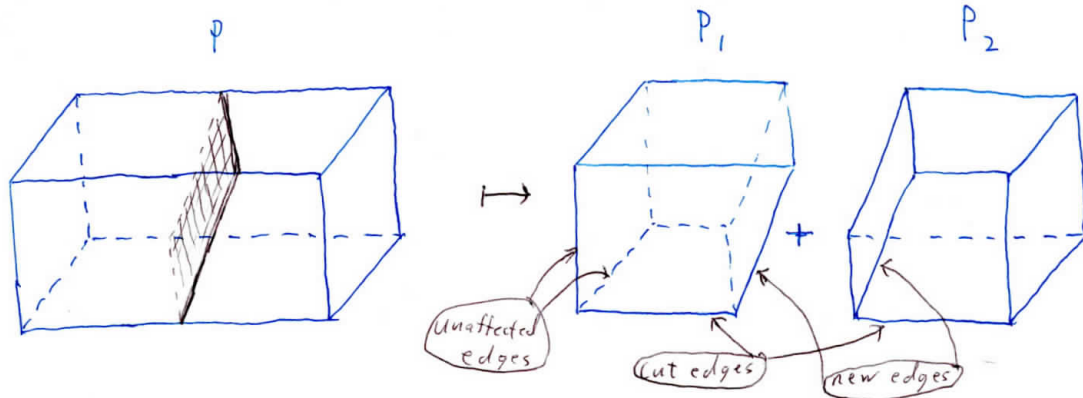 P
P1
P2
+
unaffected
edges
cut edges
new edges